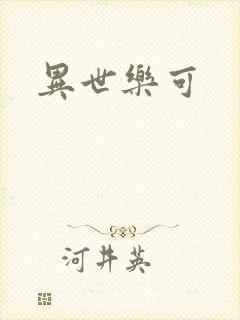 異世樂可
河井英